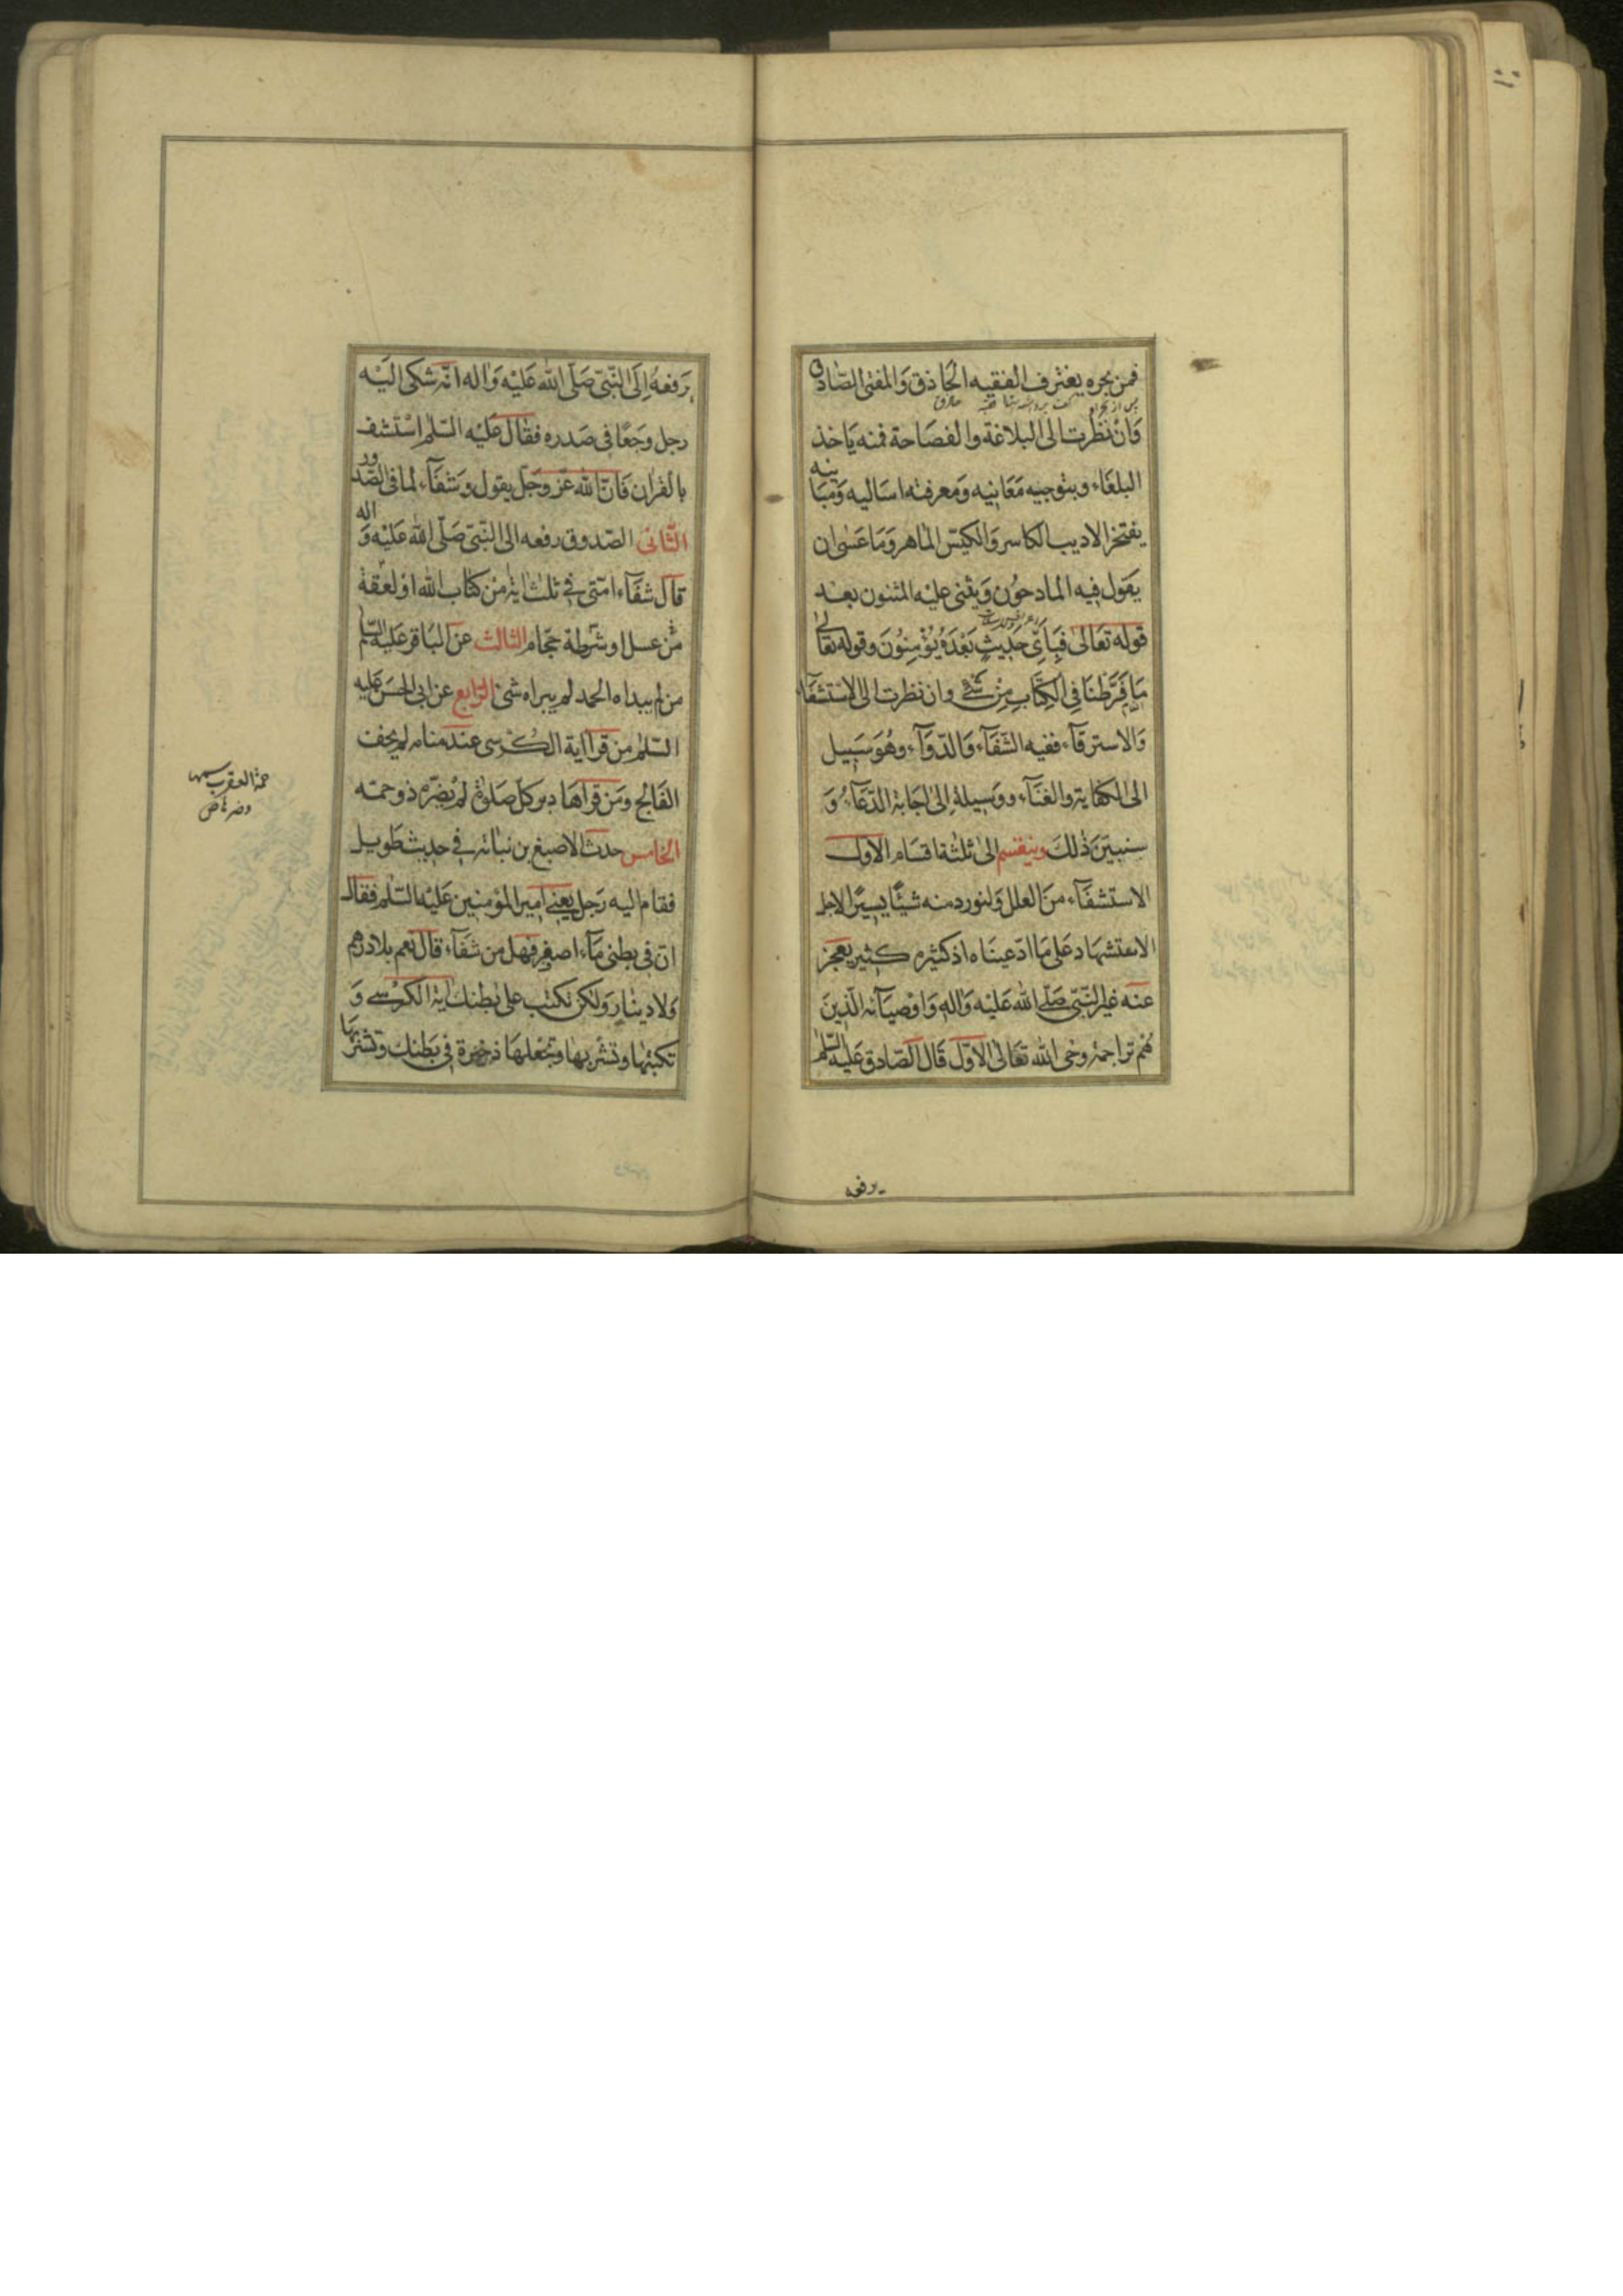 فمن بحره يغترف الفقيه الحَاذق وَالمفتى الصّادق
وَانْ نَظَرت الى البلاغة والفصَاحة فمنه يَاخذ
البلغَاء وبتوجيه مَعَانيه وَمَعرفته اسَاليبه وَمبَانيه
يفتخر الاديب الكاسر وَالكيّس المٰاهر وَمَا عَسىٰ ان
يقول فيه المادحُون وَيثنى عليْه المثنون بعْد
قوله تعَالىٰ فَبِاَىِّ حَدِيثٍ بَعْدَهُ يُؤْمِنُونَ وقوله تعَالىٰ
مَا فَرَّطنَا فِى الكِتَابِ مِنْ شَىْءٍ وان نظرت الى الاسْتشفَآء
وَالاسترقآء ففيه الشّفَآء وَالدّوَآء وهُوَ سَبيل
الى الكفاية والغنَآء ووَسيلة اِلىٰ اجَابة الدّعَآء وَ
سنبيّن ذٰلكَ وينقسم الىٰ ثلٰثة اقسَام الاوّل
الاستشفَآء منَ العلل وَلنورد منه شيئًا يسيْرًا لاجل
الاستشهاد عَلى مَا ادّعينَاه اذ كثيره كثير يعجز
عنه غير النّبىّ صَلّى اللّه عَليْه وَاله وَاوْصيَآئه الّذينَ
هُم تراجمة وحى اللّه تعَالىٰ الاوّل قَال الصّادق عَليه السّلٰم
يرفعه
يَرفعهُ اِلَى النّبىّ صَلّى اللّه عَليْه وَاله انّه شكى اليْه
رجل وجَعًا فى صَدره فقال عَليْه السّلٰم اسْتَشف
بالقرٰان فَانّ اللّه عَزّ وجَلّ يقول وَشفَآء لمٰا فى الصّدور
الثّانى الصّدوق رفعه الى النّبىّ صَلّى اللّه عَليْه وَ اله
قال شفَآء امّتى فى ثلٰث اٰية مْن كتاب اللّه او لعْقة
مّن عسل او شَرْطة حجّام الثالث عن البَاقر عَليْه السّلٰم
من لم يبراه الحمد لم يبراه شئ الرّابع عن ابى الحسَن عَليه
السّلٰم من قرا اية الكُرْسى عند منامه لم يخف
الفَالج ومَن قراهَا دبر كلّ صَلوٰة لمْ يضرّه ذو حمَة
حمة العقرب سمها
وضرها ض
الخامس حدث الاصبغ بن نباته فى حديث طَويل
فقام اليه رَجل يعنى امير المؤمنين عَليْه السّلٰم فقال
انّ فى بطنى مَآء اصفر فهل من شفَآء قال نعم بلا درهم
وَلا دينٰار وَلكن تكتب على بَطنك اٰية الكرْسى وَ
تكتبْها وتشربها وتجْعلهَا ذخيرة فى بَطنك وتشربهَا